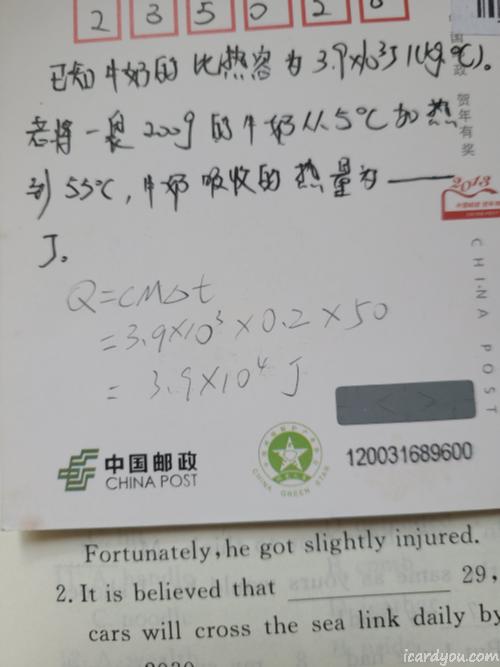 235020
已知牛奶的比热容为3.9×10³J/(kg·℃)。
若将一袋200g的牛奶从5℃加热
到55℃,牛奶吸收的热量为——
J。
Q=cm△t
=3.9×10³×0.2×50
=3.9×10⁴J
国邮政 贺年有奖
2013
CHINA POST
中国邮政
CHINA POST
CHINA GREEN STAR
120031689600
Fortunately, he got slightly injured.
2. It is believed that ________ 29,
cars will cross the sea link daily by
2030
icardyou.com